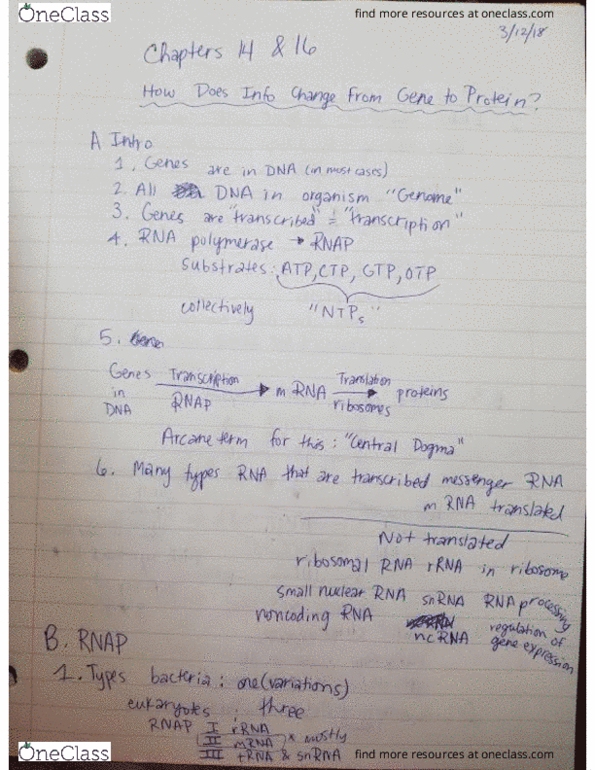 OneClass
find more resources at oneclass.com
3/12/18
Chapters 14 & 16
How Does Info Change From Gene to Protein?
A Intro
1. Genes are in DNA (in most cases)
2. All DNA in organism "Genome"
3. Genes are "transcribed" = "transcription"
4. RNA polymerase → RNAP
substrates: ATP, CTP, GTP, OTP
collectively "NTPs"
5.
Genes in DNA Transcription RNAP → mRNA Translation ribosomes → proteins
Arcane term for this: "Central Dogma"
6. Many types RNA that are transcribed messenger RNA
mRNA translated
Not translated
ribosomal RNA rRNA in ribosome
small nuclear RNA snRNA RNA processing
noncoding RNA ncRNA regulation of gene expression
B. RNAP
1. Types bacteria: one (variations)
eukaryotes: three
RNAP I rRNA
II mRNA * mostly
III tRNA & snRNA
OneClass
find more resources at oneclass.com